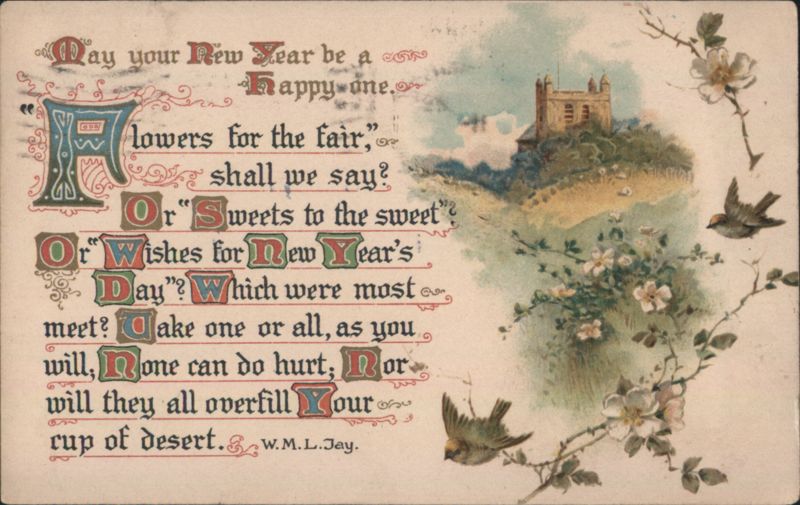 May your New Year be a
Happy one.
"Flowers for the fair,"
shall we say?
Or "Sweets to the sweet"?
Or "Wishes for New Year's
Day"? Which were most
meet? Take one or all, as you
will; None can do hurt; Nor
will they all overfill Your
cup of desert. W.M.L.Jay.